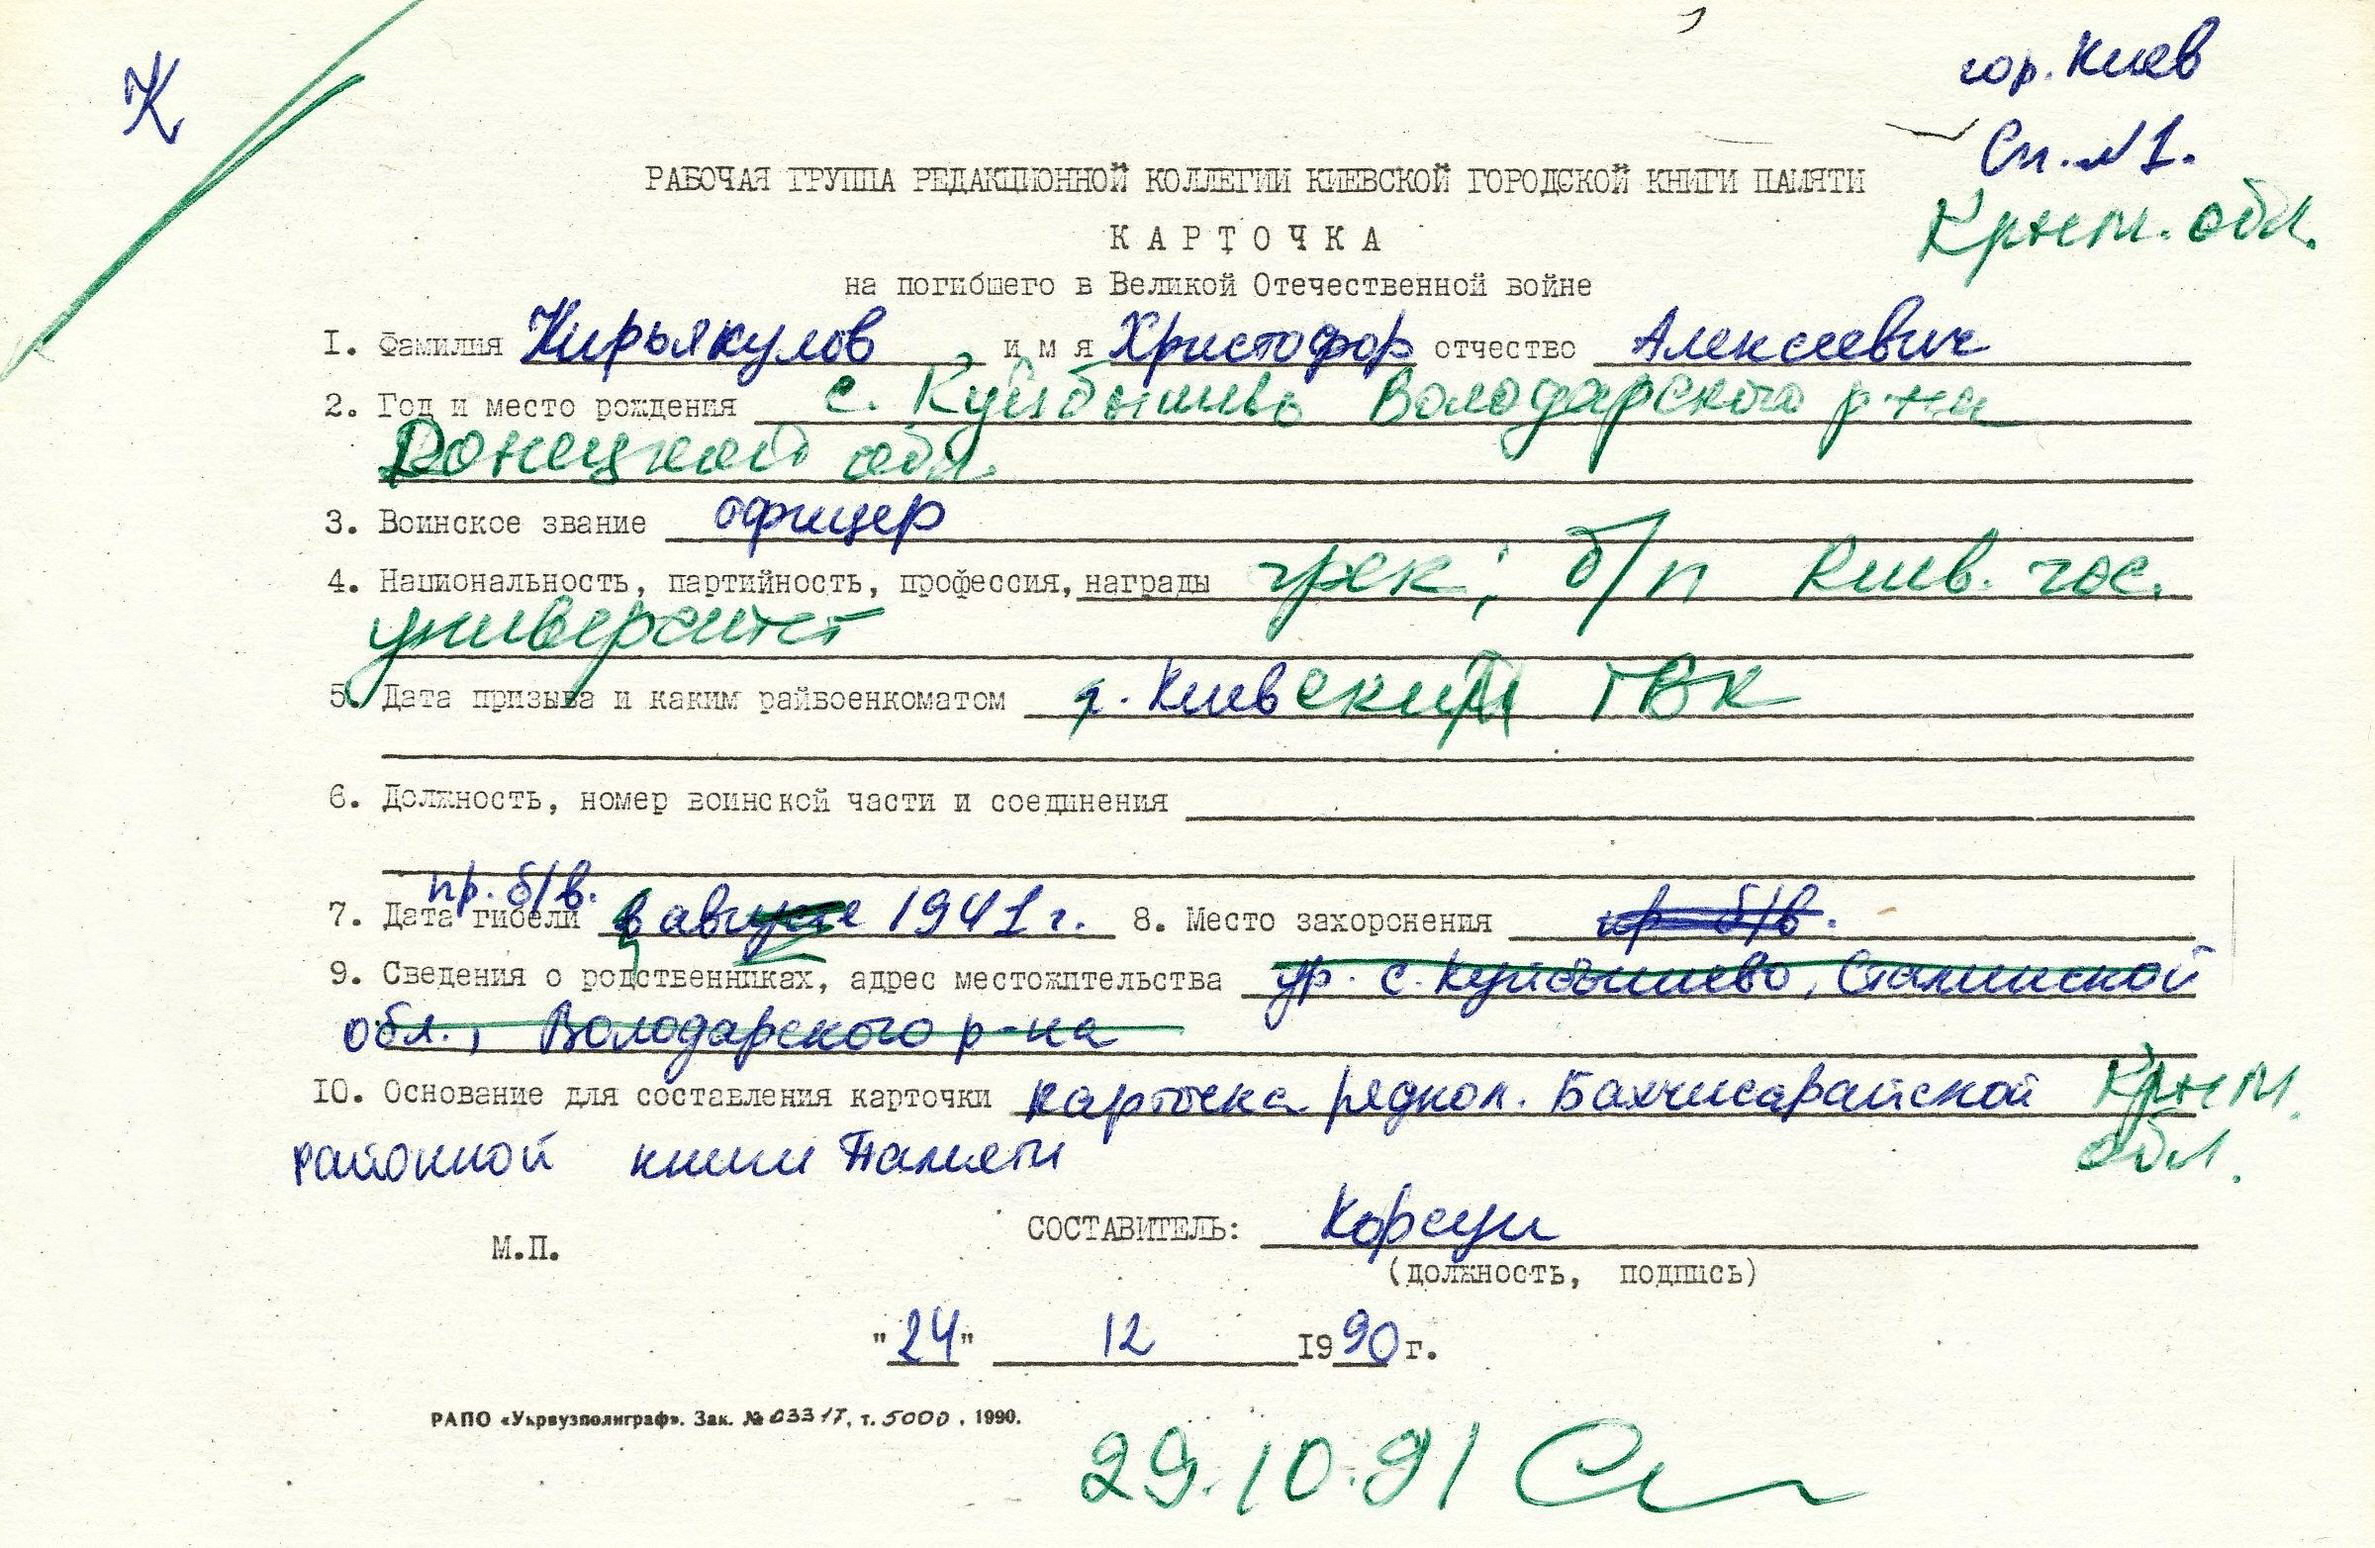 К
гор. Киев
Сп. N1.
Крым. обл.
РАБОЧАЯ ГРУППА РЕДАКЦИОННОЙ КОЛЛЕГИИ КИЕВСКОЙ ГОРОДСКОЙ КНИГИ ПАМЯТИ
КАРТОЧКА
на погибшего в Великой Отечественной войне
I. Фамилия Кирьякулов имя Христофор отчество Алексеевич
2. Год и место рождения с. Куйбышево Володарского р-на
Донецкой обл.
3. Воинское звание офицер
4. Национальность, партийность, профессия, награды грек; б/п Киев. гос.
университет
5. Дата призыва и каким райвоенкоматом г. Киевский ГВК
6. Должность, номер воинской части и соединения
пр. б/в.
7. Дата гибели в августе 1941 г. 8. Место захоронения пр б/в.
9. Сведения о родственниках, адрес местожительства ур. с. Куйбышево, Сталинской
обл., Володарского р-на
10. Основание для составления карточки карточка редкол. Бахчисарайской Крым.
районной книги Памяти обл.
СОСТАВИТЕЛЬ: Корсун
М.П.
(должность, подпись)
"24" 12 1990 г.
РАПО «Укрвузполиграф». Зак. № 03317, т. 5000, 1990.
29.10.91